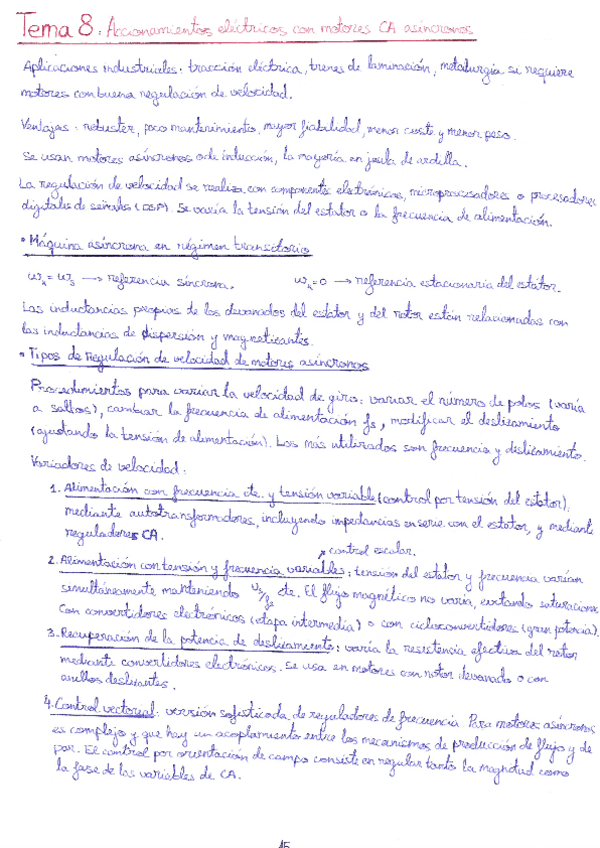 Tema 8. Accionamientos eléctricos con motores CA asíncronos
Aplicaciones industriales: tracción eléctrica, trenes de laminación, metalurgia se requiere
motores con buena regulación de velocidad.
Ventajas: robustez, poco mantenimiento, mayor fiabilidad, menor coste y menor peso.
Se usan motores asíncronos o de inducción, la mayoría en jaula de ardilla.
La regulación de velocidad se realiza con componentes electrónicos, microprocesadores o procesadores
digitales de señales (DSP). Se varía la tensión del estator o la frecuencia de alimentación.
• Máquina asíncrona en régimen transitorio
→ referencia síncrona. =0 → referencia estacionaria del estátor.
Las inductancias propias de los devanados del estator y del rotor están relacionadas con
las inductancias de dispersión y magnetizantes.
• Tipos de Regulación de velocidad de motores asíncronos
Procedimientos para variar la velocidad de giro: variar el número de polos (varía
a saltos), cambiar la frecuencia de alimentación fs, modificar el deslizamiento
(ajustando la tensión de alimentación). Los más utilizados son frecuencia y deslizamiento.
Variadores de velocidad:
1. Alimentación con frecuencia cte. y tensión variable (control por tensión del estator),
mediante autotransformadores, incluyendo impedancias en serie con el estator, y mediante
reguladores CA.
↗ control escalar.
2. Alimentación con tensión y frecuencia variables: tensión del estator y frecuencia varían
simultáneamente manteniendo cte. El flujo magnético no varía, evitando saturaciones
Con convertidores electrónicos (etapa intermedia) o con cicloconvertidores (gran potencia).
3. Recuperación de la potencia de deslizamiento: varía la resistencia efectiva del rotor
mediante convertidores electrónicos. Se usa en motores con rotor devanado o con
anillos deslizantes.
4. Control vectorial: versión sofisticada de reguladores de frecuencia Para motores asíncronos
es complejo y que hay un acoplamiento entre los mecanismos de producción de flujo y de
par. El control por orientación de campo consiste en regular tanto la magnitud como
la fase de las variables de CA.
15